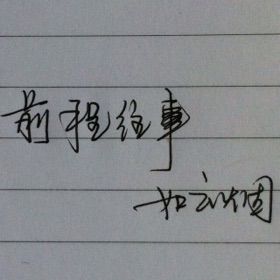 前程往事
如云烟